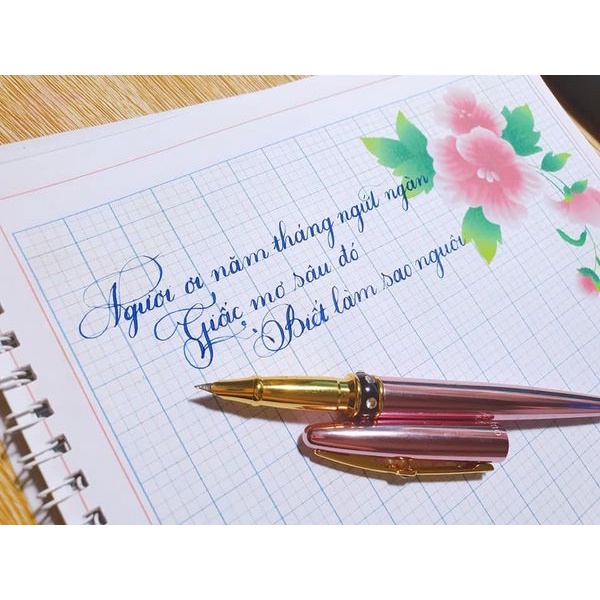 Người ơi năm tháng ngút ngàn
Giấc mơ sâu đó
Biết làm sao nguôi